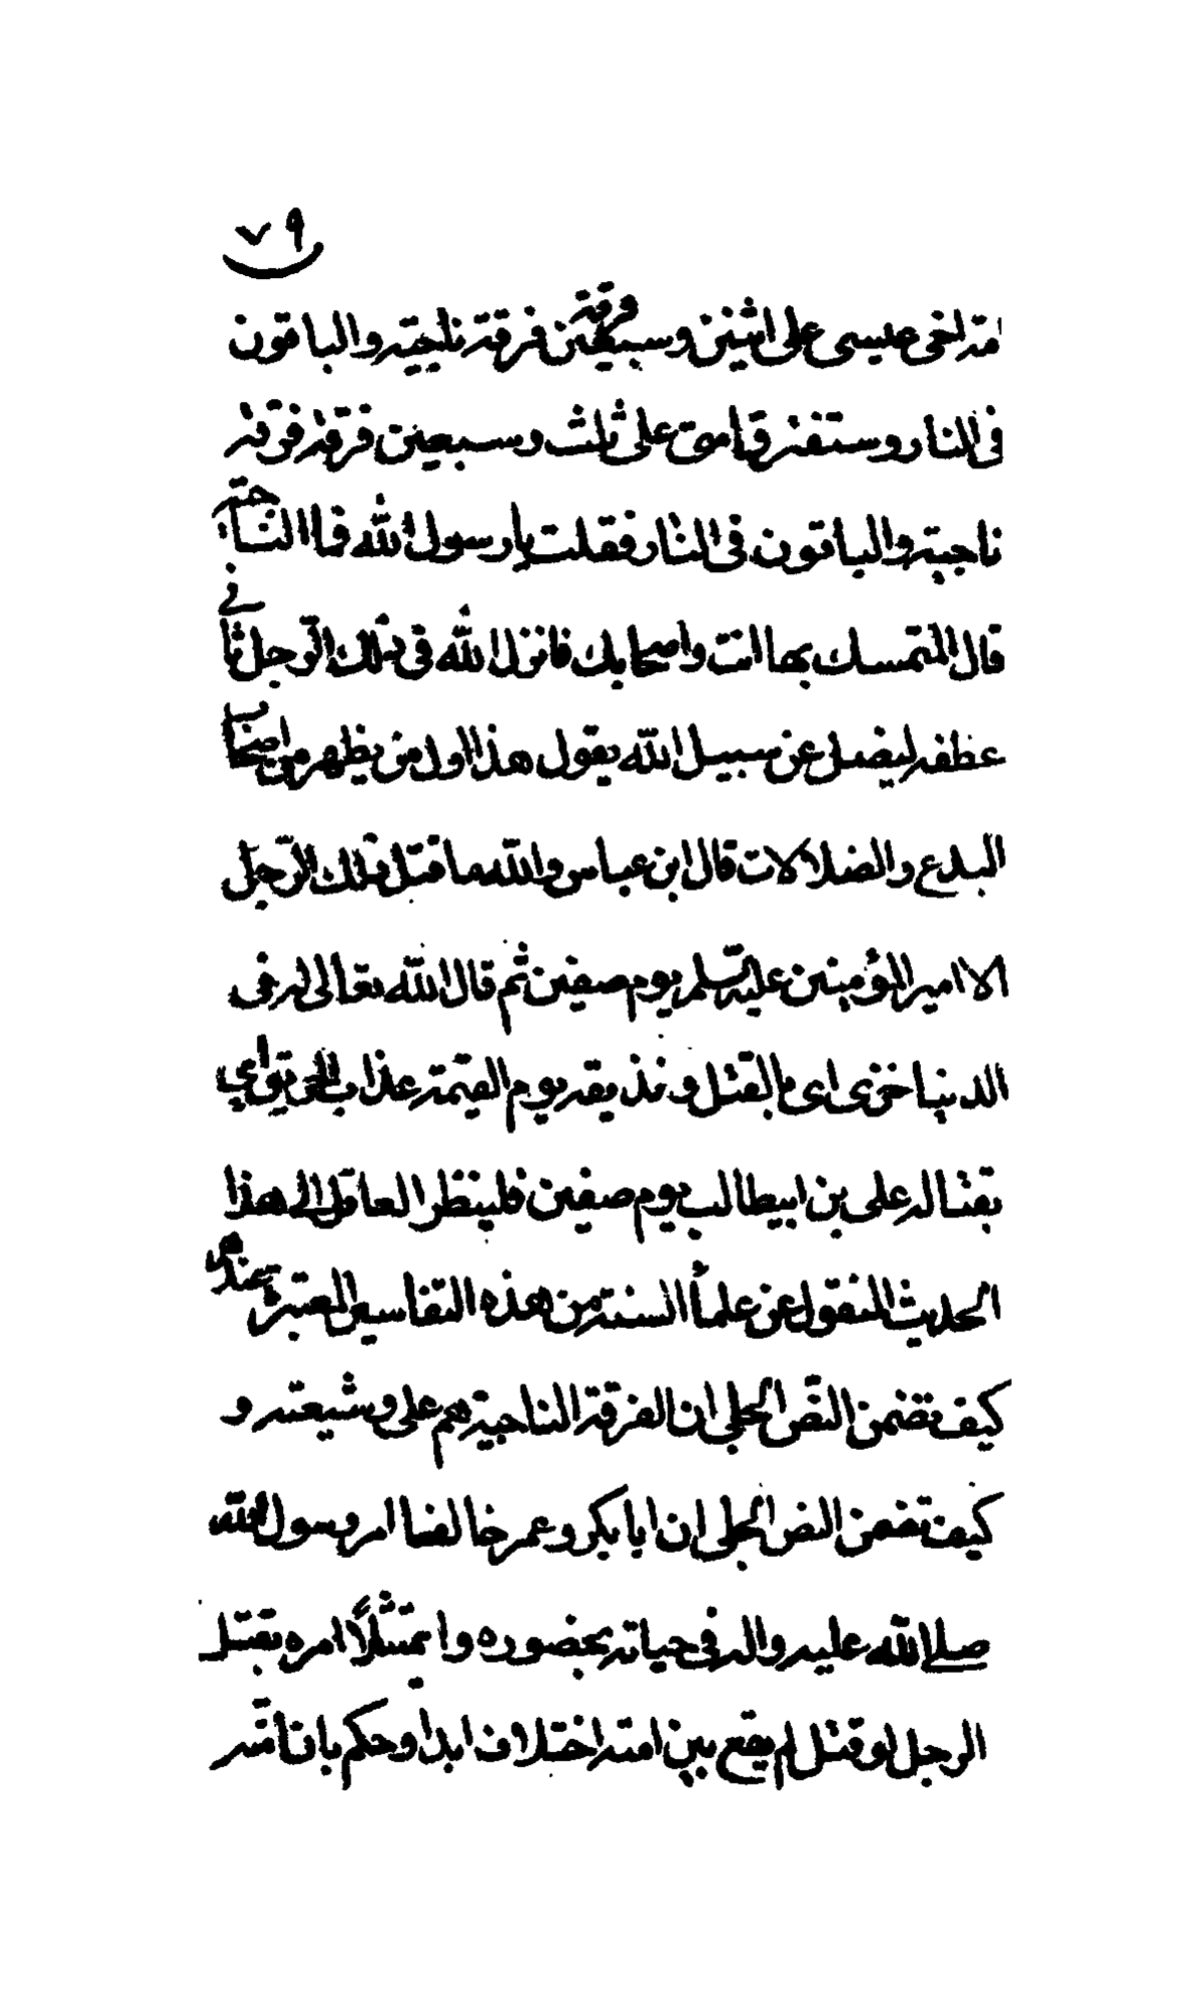 ٧٩
امة اخى عيسى على اثنين وسبعين فرقة فرقة ناجية والباقون
فى النار وستفترق امتى على ثلث وسبعين فرقة فرقة
ناجية والباقون فى النار فقلت يا رسول الله فما الناجية
قال المتمسك بما انت واصحابك فانزل الله فى ذلك الرجل ثانى
عطفه ليضل عن سبيل الله يقول هذا اول من يظهر من اصحاب
البدع والضلالات قال ابن عباس والله ما قتل ذلك الرجل
الا امير المؤمنين عليه السلم يوم صفين ثم قال الله تعالى له فى
الدنيا خزى اى بالقتل ونذيقه يوم القيمة عذاب الحريق اى
بقتاله على بن ابيطالب يوم صفين فلينظر العاقل الى هذا
الحديث المنقول عن علمأ السنة من هذه التفاسير المعتبرة عندهم
كيف تضمن النصّ الجلى ان الفرقة الناجية هم على وشيعته و
كيف تضمن النص الجلى ان ابا بكر وعمر خالفا امر رسول الله
صلى الله عليه واله فى حياته بحضوره وا يمتثلاً امره بقتل
الرجل لو قتل لم يقع بين امته اختلاف ابدا وحكم بان امّته